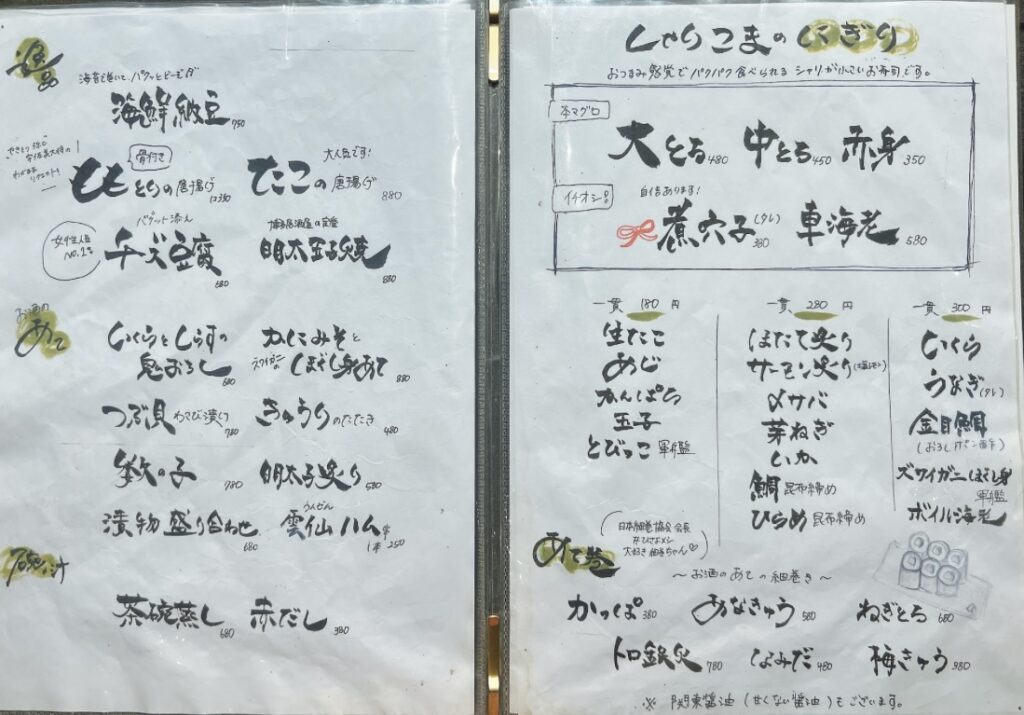 逸品
海鮮納豆 750
骨付き
ももとりの唐揚げ
大人気です!
たこの唐揚げ 880
女性人気
No.1
チーズ豆腐 680
明太玉子焼 880
お酒の
あて
いくらとしらすの
鬼おろし 680
かにみそと
ズワイガニ ほぐし身あて 880
つぶ貝わさび漬け 780
きゅうりのたたき 480
数の子 780
明太子炙り 580
漬物盛り合わせ 680
うんぜん
雲仙ハム
1本 250
碗・汁
茶碗蒸し 680
赤だし 380
しゃりこまのにぎり
おつまみ感覚でパクパク食べられる シャリが小さいお寿司です。
本マグロ
大とろ 480 中とろ 450 赤身 350
イチオシ!!
自信あります!
煮穴子(タレ) 380 車海老 580
一貫 180円
生たこ
あじ
かんぱち
玉子
とびっこ 軍艦
一貫 280円
ほたて炙り
サーモン炙り(塩レモン)
〆サバ
芽ねぎ
いか
鯛 昆布締め
ひらめ 昆布締め
一貫 300円
いくら
うなぎ(タレ)
金目鯛
(おろしポン酢)
ズワイガニほぐし身
軍艦
ボイル海老
あて巻
日本細巻協会 会長
大好き
〜お酒のあての細巻き〜
かっぱ 380 あなきゅう 580 ねぎとろ 680
トロ鉄火 780 なみだ 480 梅きゅう 380
※ 関東醤油(甘くない醤油)もございます。